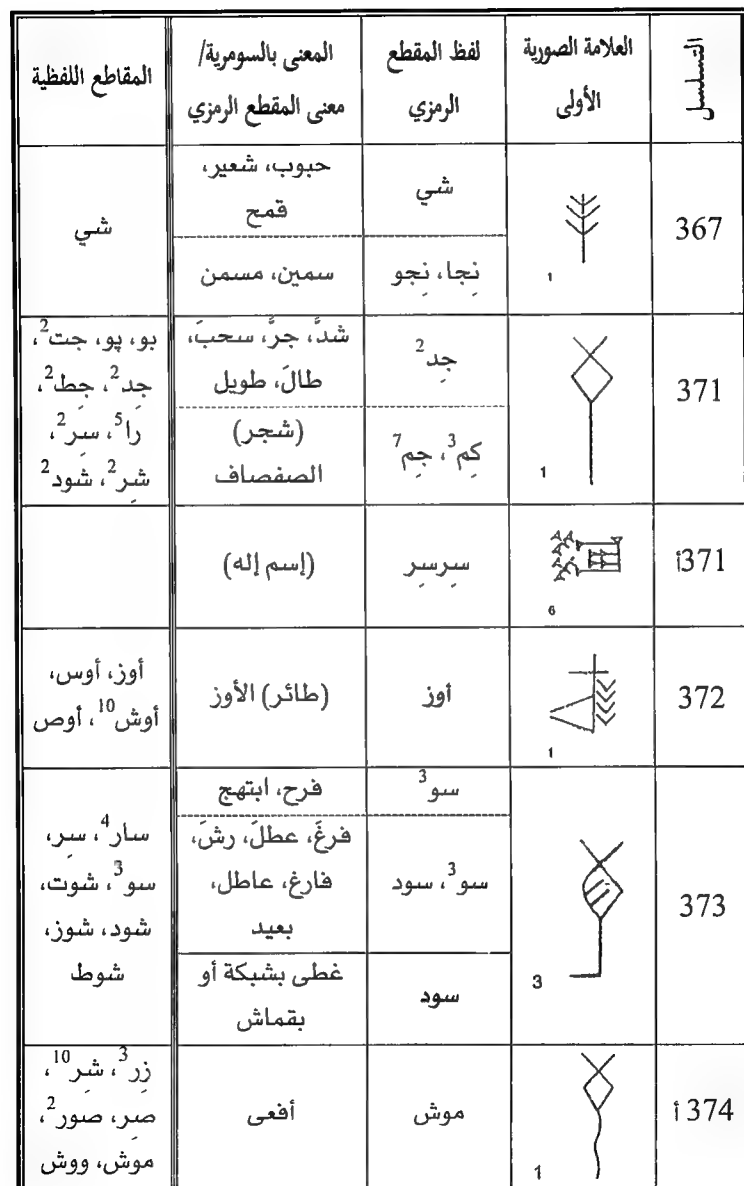 التسلسل | العلامة الصورية الأولى | لفظ المقطع الرمزي | المعنى بالسومرية/ معنى المقطع الرمزي | المقاطع اللفظية
367 | 1 | شي | حبوب، شعير، قمح | شي
نِجا، نِجو | سمين، مسمن
371 | 1 | جِد² | شدَّ، جرَّ، سحبَ، طالَ، طويل | بو، پو، جت²، جِد²، جِط²، را⁵، سِر²، شِر²، شود²
كِم³، جِم⁷ | (شجر) الصفصاف
371أ | 6 | سِرسِر | (إسم إله)
372 | 1 | أوز | (طائر) الأوز | أوز، أوس، أوش¹⁰، أوص
373 | 3 | سو³ | فرح، ابتهج | سار⁴، سِر، سو³، شوت، شود، شوز، شوط
سو³، سود | فرغَ، عطلَ، رشَ، فارغ، عاطل، بعيد
سود | غطى بشبكة أو بقماش
374أ | 1 | موش | أفعى | زِر³، شِر¹⁰، صِر، صور²، موش، ووش